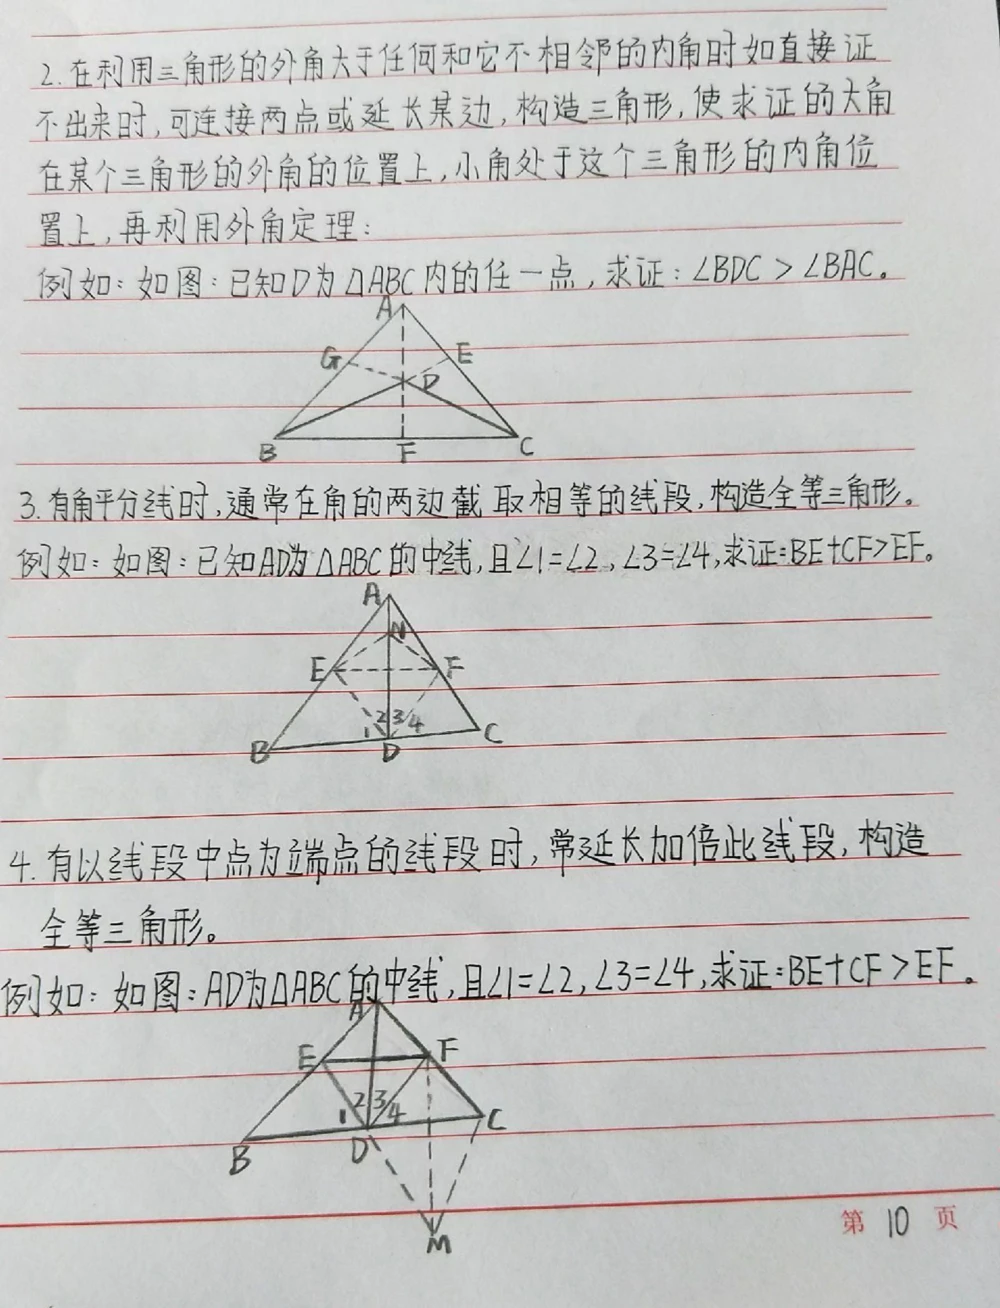 2.在利用三角形的外角大于任何和它不相邻的内角时如直接证
不出来时,可连接两点或延长某边,构造三角形,使求证的大角
在某个三角形的外角的位置上,小角处于这个三角形的内角位
置上,再利用外角定理:
例如:如图:已知D为△ABC内的任一点,求证:∠BDC>∠BAC。
A
G E
D
B F C
3.有角平分线时,通常在角的两边截取相等的线段,构造全等三角形。
例如:如图:已知AD为△ABC的中线,且∠1=∠2,∠3=∠4,求证:BE+CF>EF。
A
N
E F
1 2 3 4
B D C
4.有以线段中点为端点的线段时,常延长加倍此线段,构造
全等三角形。
例如:如图:AD为△ABC的中线,且∠1=∠2,∠3=∠4,求证:BE+CF>EF。
A
E F
1 2 3 4
B D C
M
第 10 页